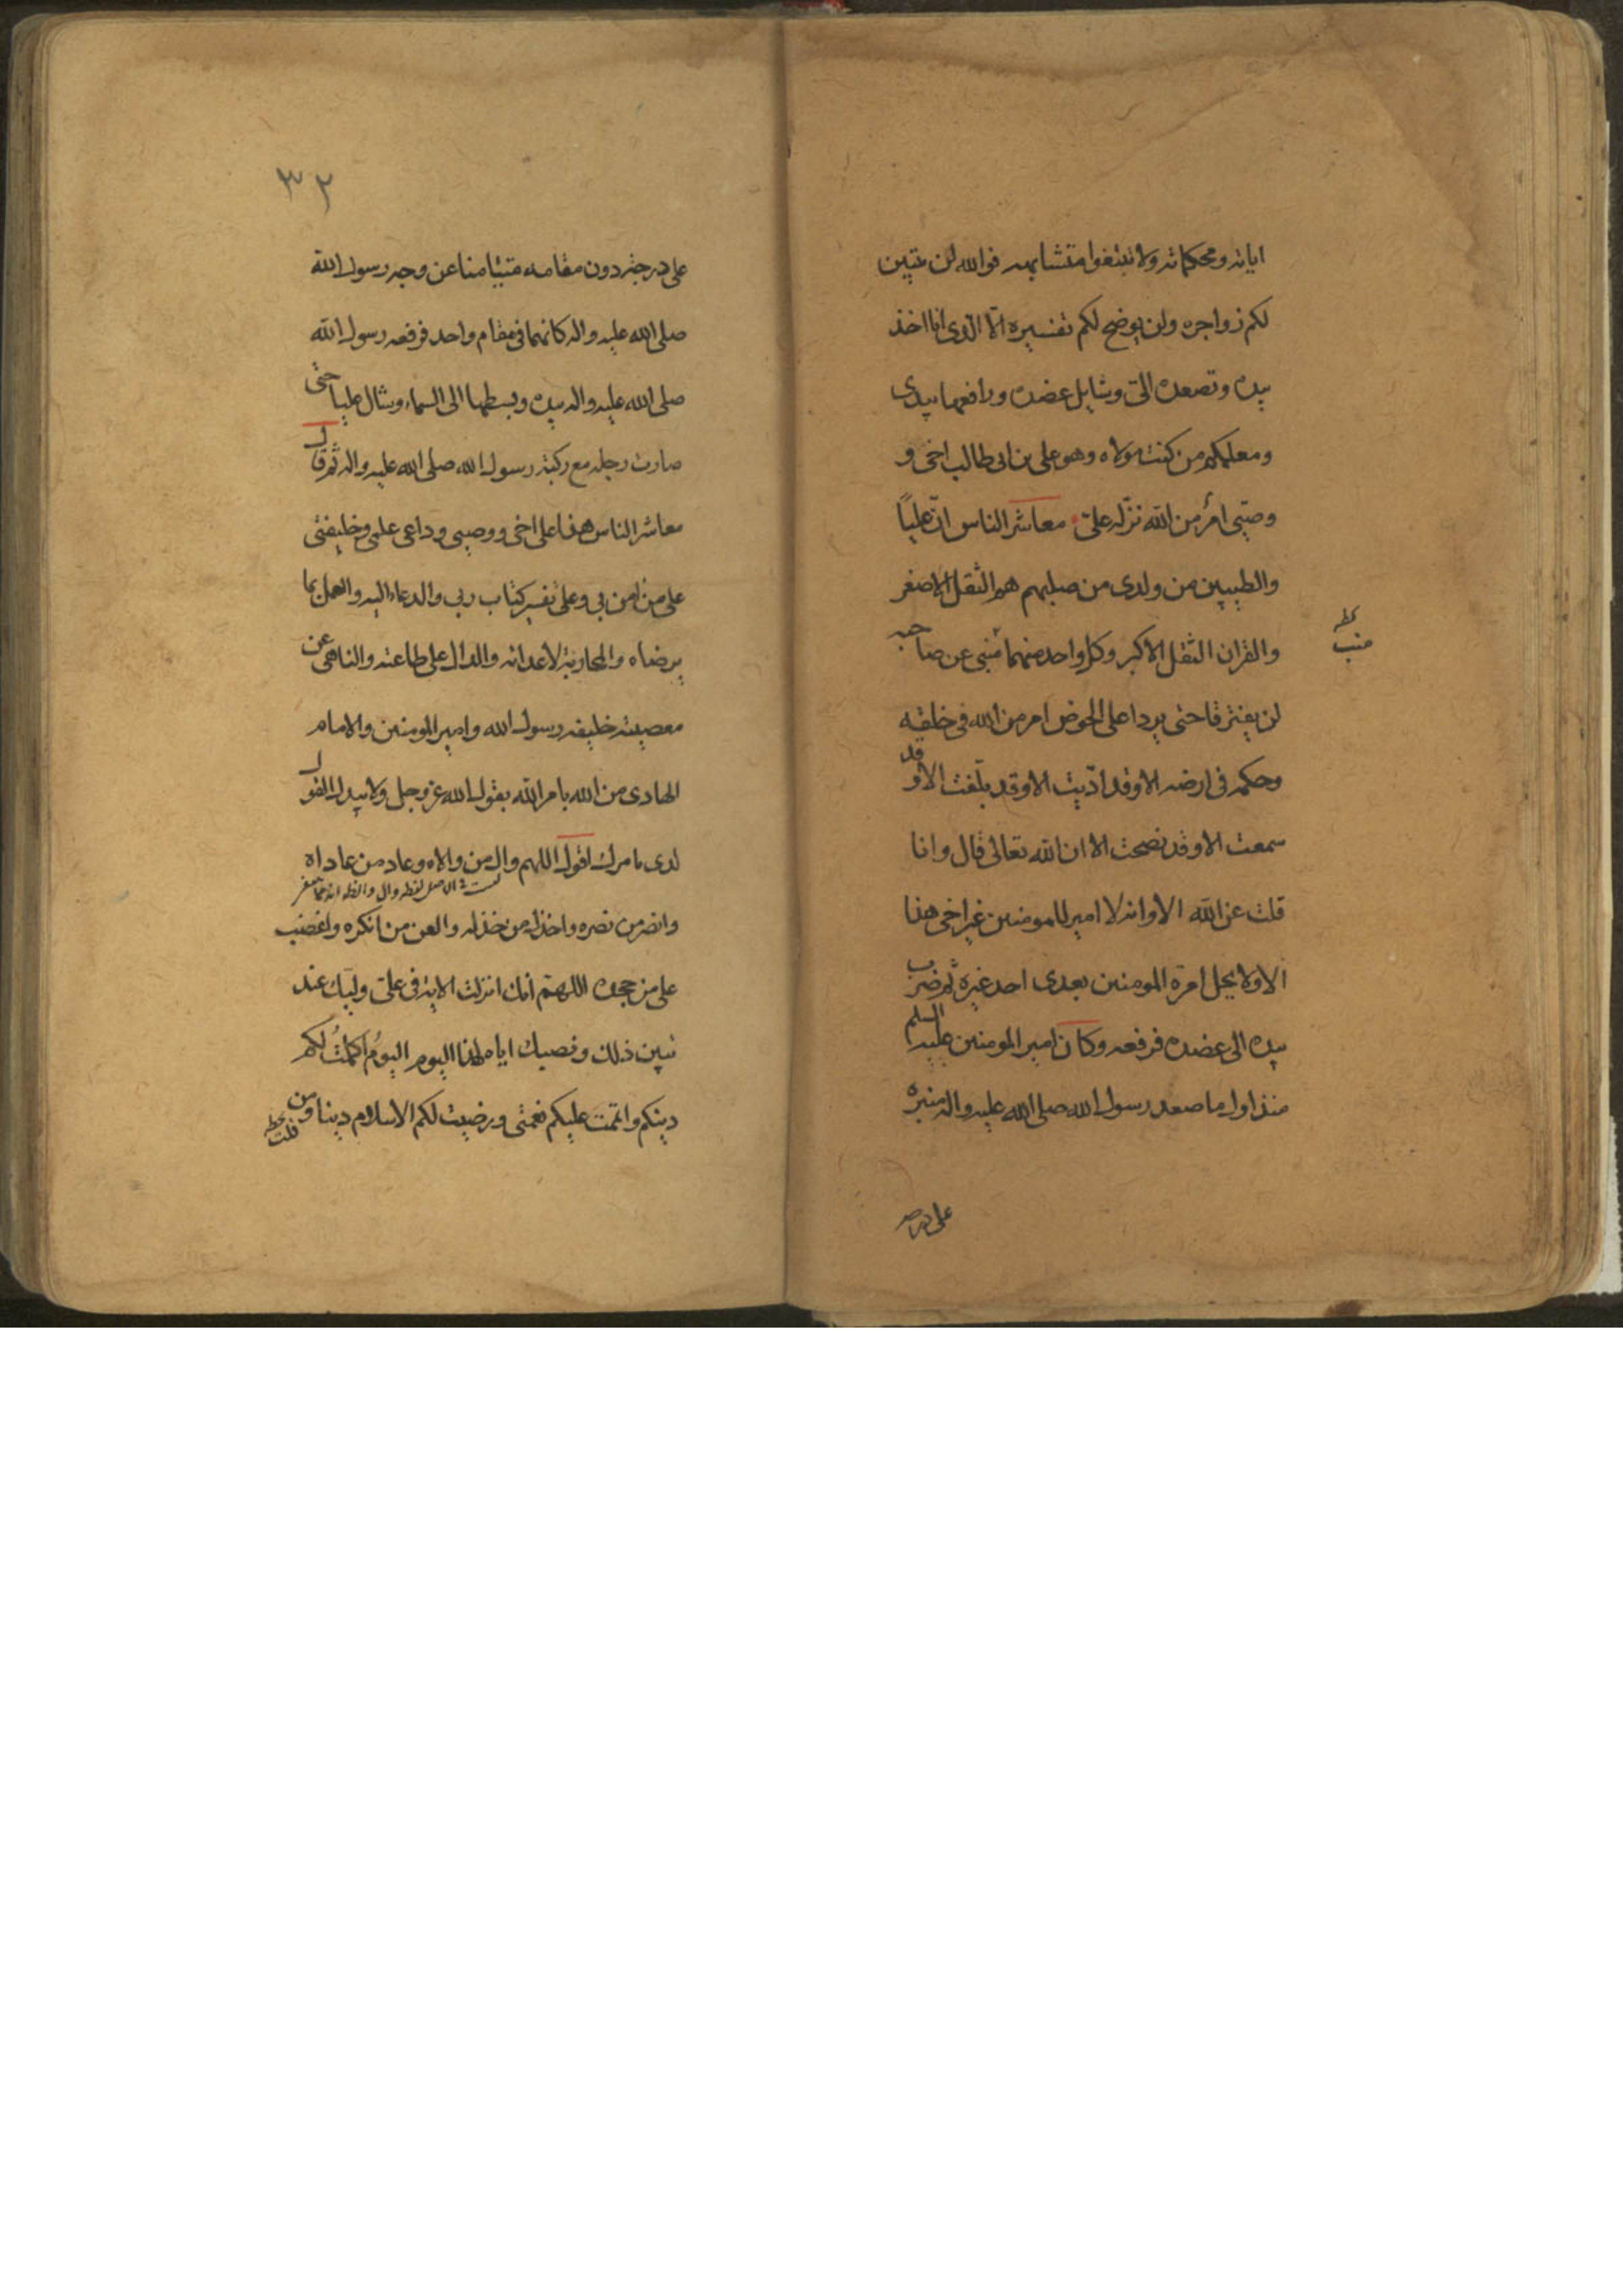 اياته ومحكماته ولا تبتغوا متشابهه فوالله لن يتبين
لكم زواجره ولن يوضح لكم تفسيره الا الذى انا اخذ
بيده وتصعده الىّ وشايل عضده ورافعها بيدى
ومعلمكم من كنت مولاه وهو على بن ابى طالب اخى و
وصيّى امرٌ من الله نزّله علىّ معاشر الناس انّ عليًا
والطيبين من ولدى من صلبهم هم الثقل الاصغر
والقران الثقل الاكبر وكل واحد منهما منبى عن صاحبه
منب
لن يفترقا حتى يردا على الحوض امر من الله فى خلقه
وحكمه فى ارضه الا وقد ادّيت الا وقد بلّغت الا وقد
سمعت الا وقد نصحت الا ان الله تعالى قال وانا
قلت عن الله الا وانه لا امير للمومنين غير اخى هذا
الا ولا يحل امرة المومنين بعدى احد غيره ثم ضرب
بيده الى عضده فرفعه وكان امير المومنين عليه السلم
منذ اول ما صعد رسول الله صلى الله عليه واله منبره
على درجة
٣٢
على درجة دون مقامه متيامنا عن وجه رسول الله
صلى الله عليه واله كانهما فى مقام واحد فرفعه رسول الله
صلى الله عليه واله بيده وبسطها الى السماء وشال عليا حتى
صارت رجله مع ركبة رسول الله صلى الله عليه واله ثم قال
معاشر الناس هذا على اخى ووصيى وداعى علمى وخليفتى
على من امن بى وعلى تفسير كتاب ربى والدعاء اليه والعمل بما
يرضاه والمحاربة لاعدائه والدال على طاعته والناهى عن
معصيته خليفه رسول الله وامير المومنين والامام
الهادى من الله بامر الله يقول الله عز وجل ولا يبدل القول
لدى بامرك اقول اللهم وال من والاه وعاد من عاداه
وانصر من نصره واخذل من خذله والعن من انكره واغضب
على من جحده اللهم انك انزلت الاية فى على وليك عند
تبين ذلك ونصبك اياه لهذا اليوم اليومُ اكملتُ لكم
دينكم واتممت عليكم نعمتى ورضيت لكم الاسلام دينا ومن
قلت